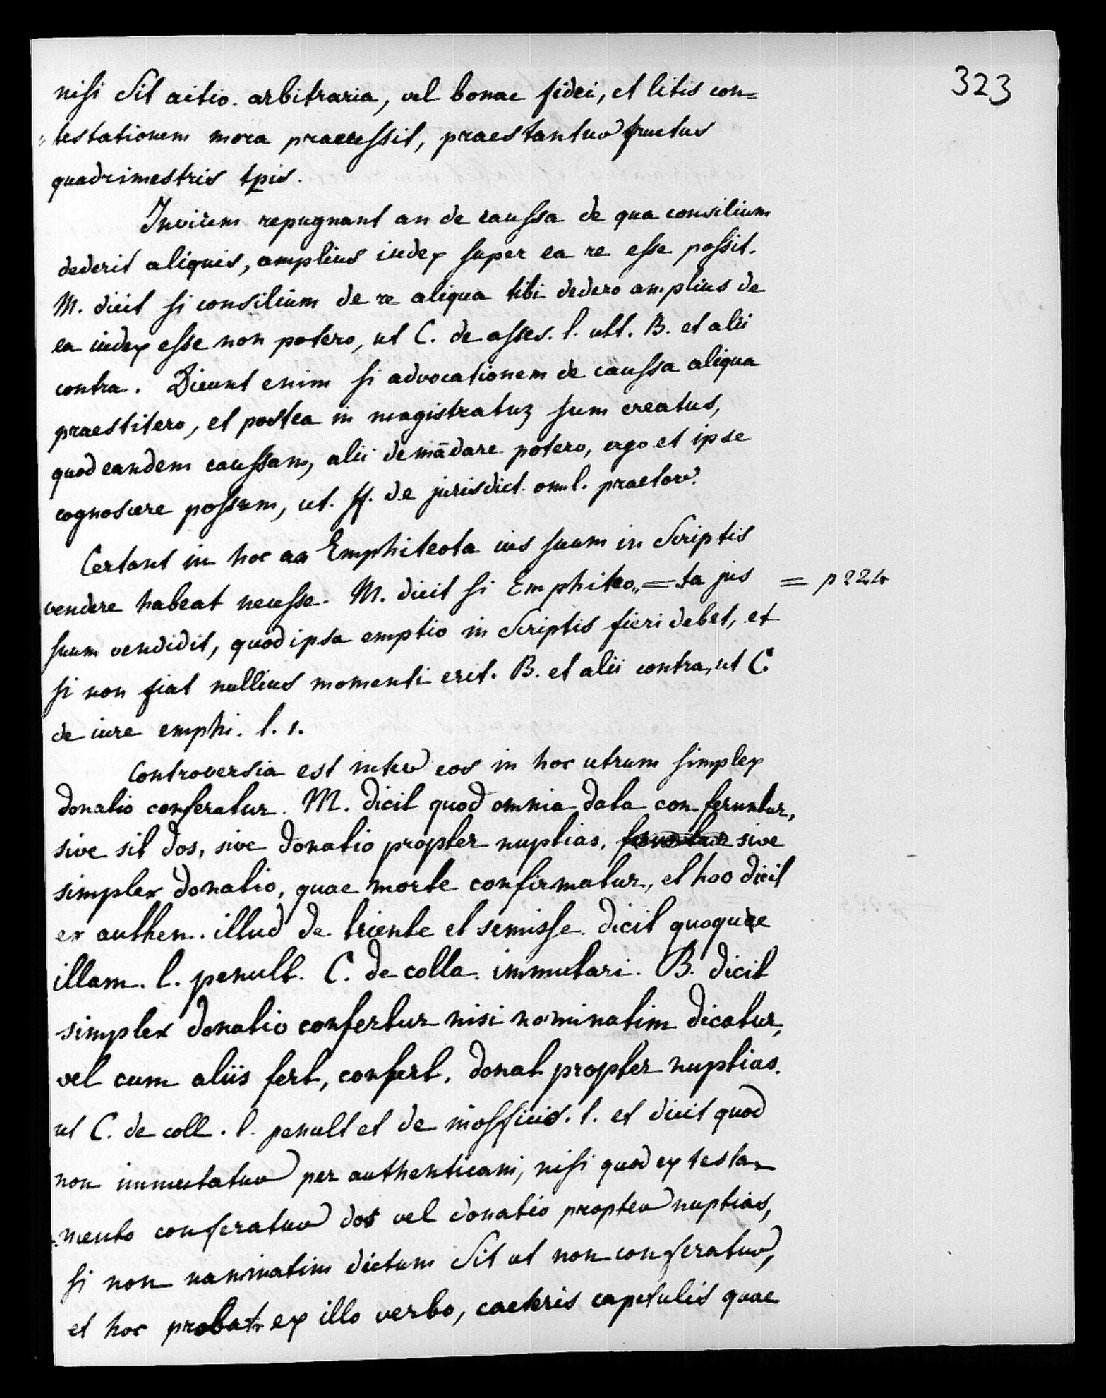 323
nisi sit actio. arbitraria, vel bonae fidei, et litis con=
testationem mora praecessit, praestantur fructus
quadrimestris tpis.
Invicem repugnant an de caussa de qua consilium
dederit aliquis, amplius iudex super ea re esse possit.
M. dicit si consilium de re aliqua tibi dedero amplius de
ea iudex esse non potero, ut C. de asses. l. ult. B. et alii
contra. Dicunt enim si advocationem de caussa aliqua
praestitero, et postea in magistratuz sum creatus,
quod eandem caussam, alii demādare potero, ergo et ipse
cognoscere possum, ut. ff. de jurisdict. om. l. praetor.
Certant in hoc an Emphiteota ius suum in scriptis
vendere habeat necesse. M. dicit si Emphiteo,,=ta jus = p 224
suum vendidit, quod ipsa emptio in scriptis fieri debet, et
si non fiat nullius momenti erit. B. et alii contra, ut C.
de iure emphi. l. 1.
Controversia est inter eos in hoc utrum simplex
donatio conferatur. M. dicit quod omnia data conferuntur,
sive sit dos, sive donatio propter nuptias, sive
simplex donatio, quae morte confirmatur, et hoc dicit
ex authen. illud de triente et semisse. dicit quoque
illam. l. penult. C. de colla. immutari. B. dicit
simplex donatio confertur nisi nominatim dicatur,
vel cum aliis fert, confert. donat propter nuptias.
ut C. de coll. l. penult et de inofficio. l. et dicit quod
non immutatur per authenticam, nisi quod ex testa=
mento conferatur dos vel donatio propter nuptias,
si non nominatim dictum sit ut non conferatur,
et hoc probatr ex illo verbo, caeteris capitulis quae